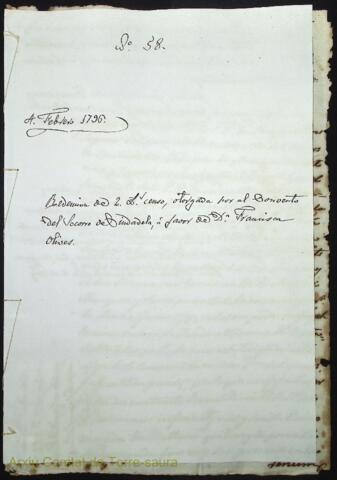 Nº 58.
4. Febrero 1796.
Redencion de 2. Ls. censo, otorgada por el Convento
del Socorro de Ciudadela, á favor de Dª. Francisca
Olives.
Arxiu Comtat de Torre-saura